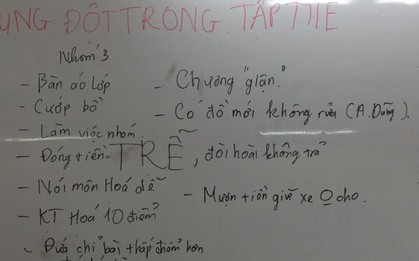 UNG ĐỘT TRONG TẬP THE
Nhóm 3
- Bàn áo lớp
- Cướp bồ
- Làm việc nhóm
- Đóng tiền TRỄ, đòi hoài không trả
- Nói môn Hoá dễ
- KT Hoá 10 điểm
- Đứa chỉ bài thấp điểm hơn
- Chương "giận."
- Có đồ mới không rửa (A. Dũng).
- Mượn tiền giữ xe O cho.